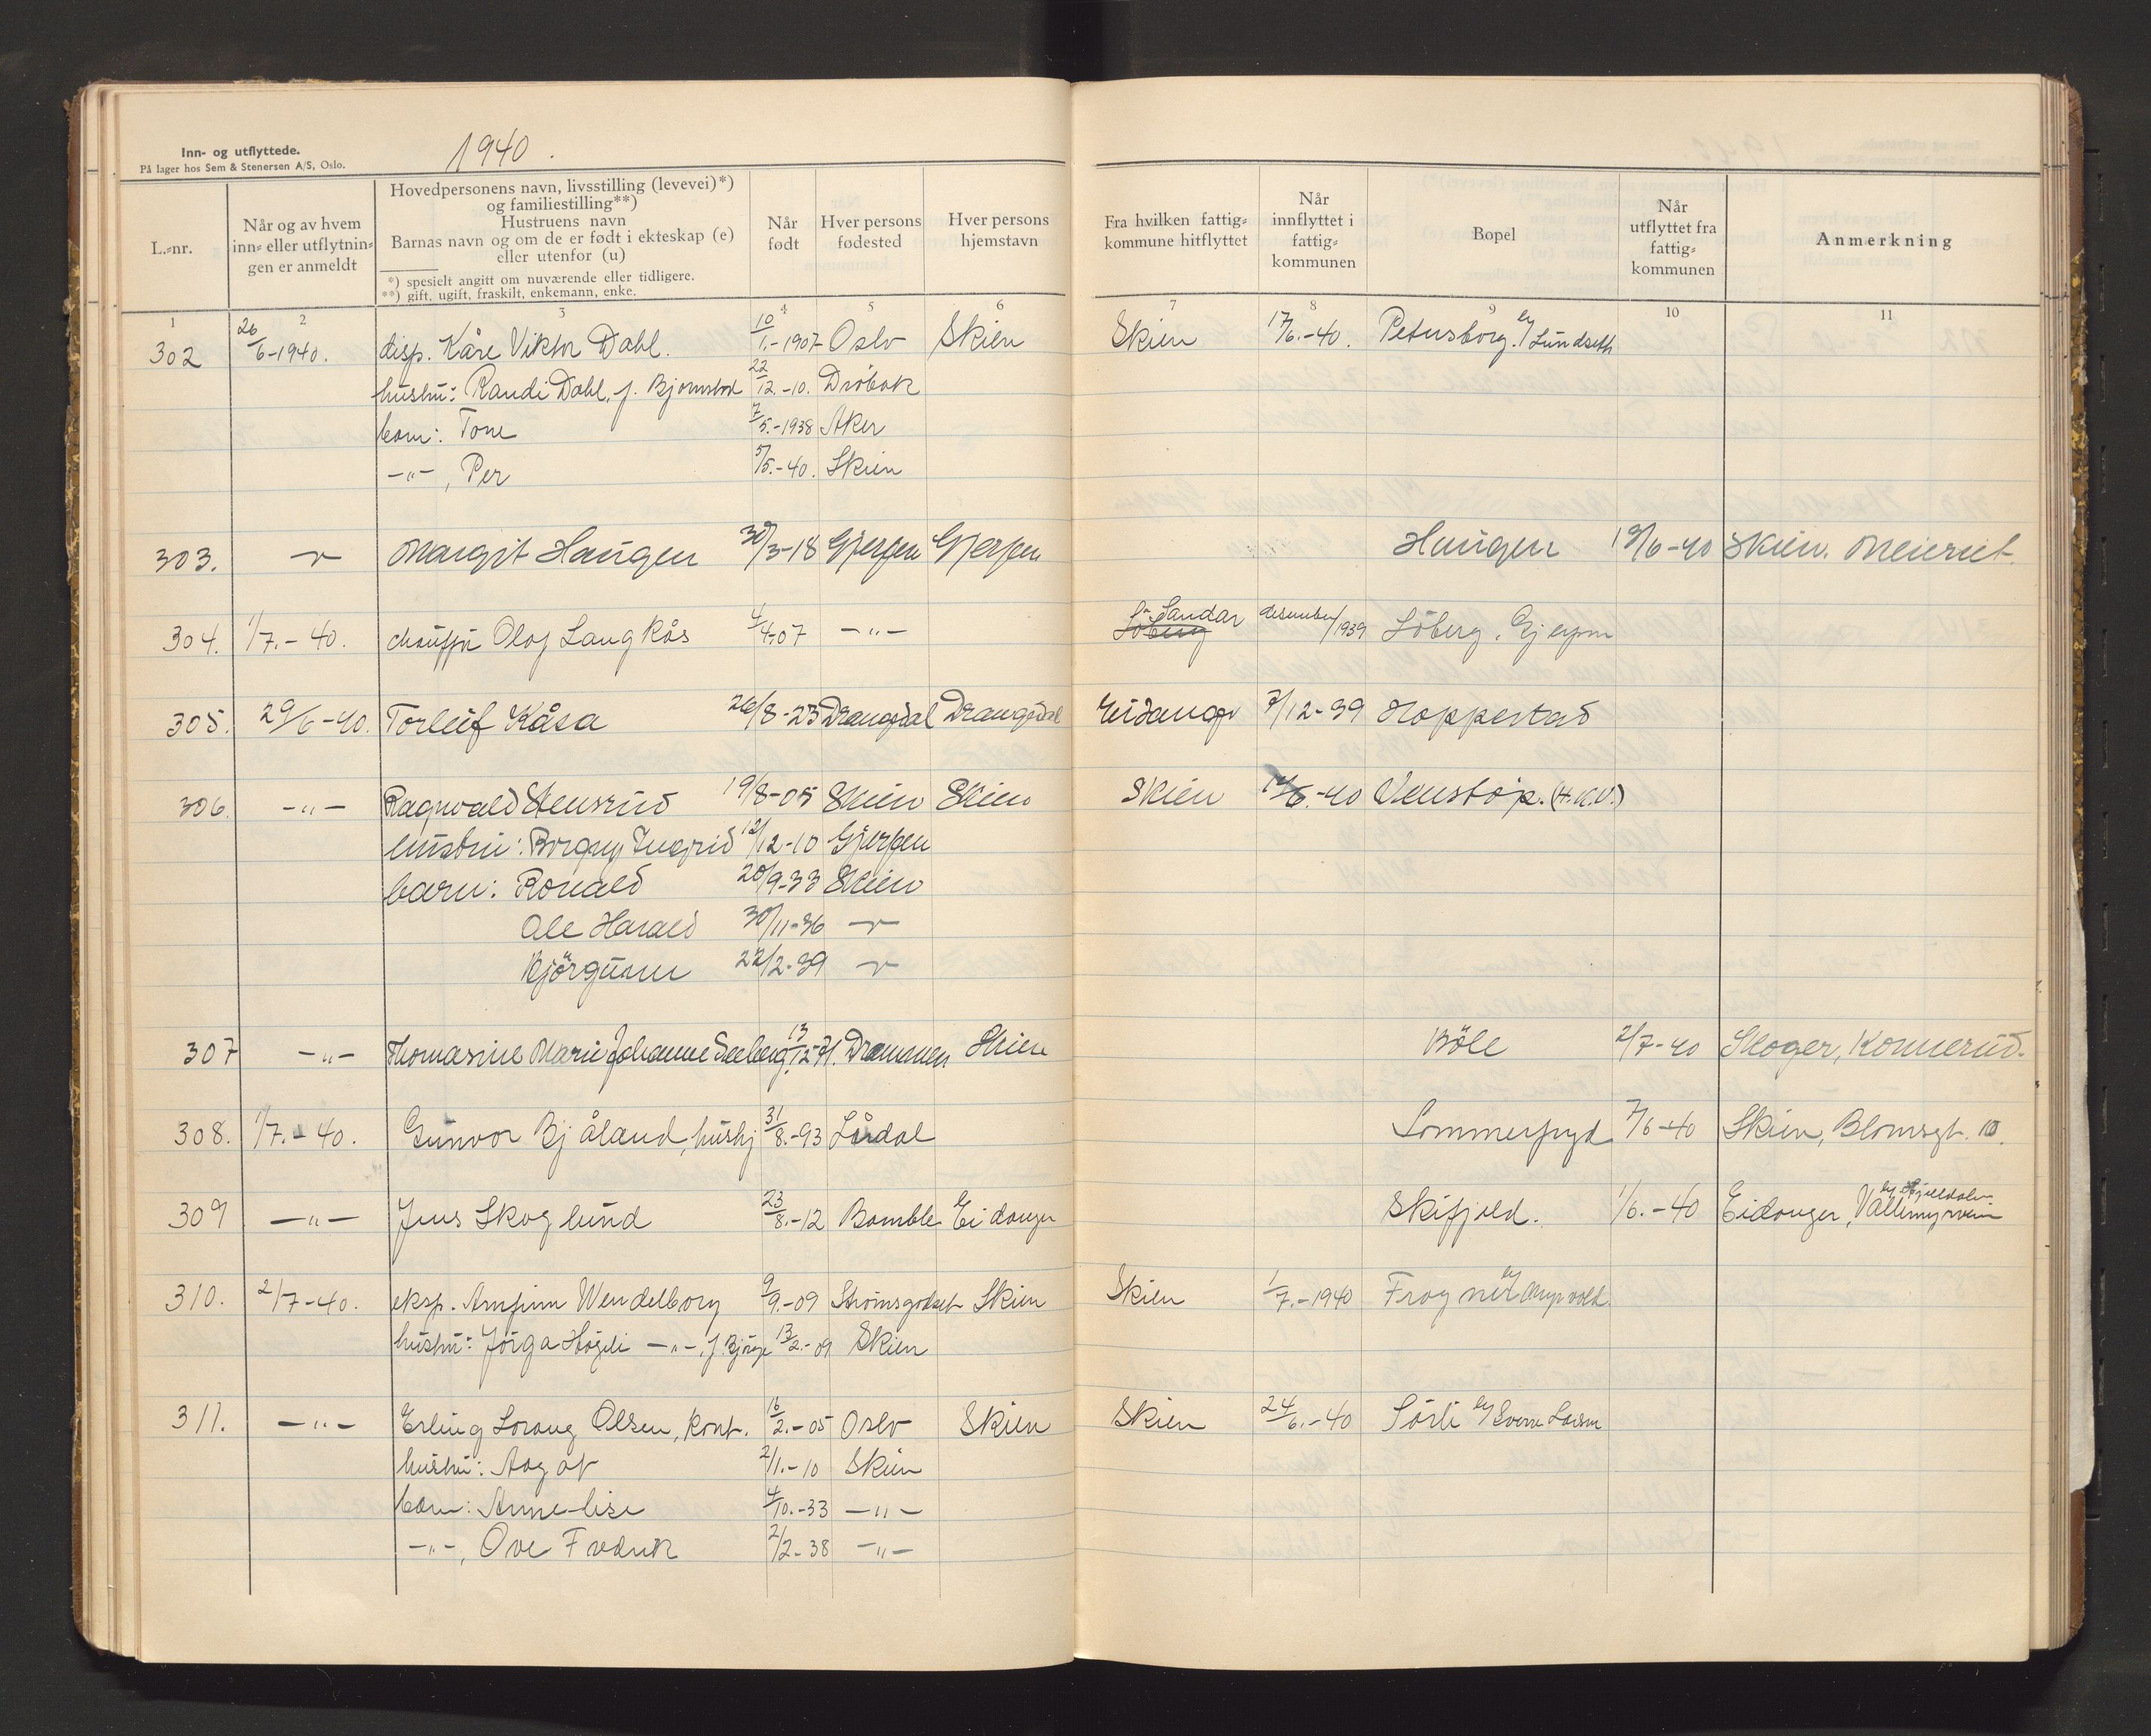 Inn- og utflyttede.
På lager hos Sem & Stenersen A/S, Oslo.
1940.
L.-nr.
Når og av hvem inn- eller utflytningen er anmeldt
Hovedpersonens navn, livsstilling (levevei)*)
og familiestilling**)
Hustruens navn
Barnas navn og om de er født i ekteskap (e)
eller utenfor (u)
*) spesielt angitt om nuværende eller tidligere.
**) gift, ugift, fraskilt, enkemann, enke.
Når født
Hver persons fødested
Hver persons hjemstavn
Fra hvilken fattig-kommune hitflyttet
Når innflyttet i fattig-kommunen
Bopel
Når utflyttet fra fattig-kommunen
Anmerkning
1 2 3 4 5 6 7 8 9 10 11
302 26/6-1940. disp. Kåre Viktor Dahl. 10/1.-1907 Oslo Skien Skien 17/6.-40. Petersborg. by Lundseth
hustru: Randi Dahl, f. 22/12.-10. Drøbak
barn: Tone 7/5.-1938 Aker
-"-, Per 5/5.-40. Skien
303. -"- Margit Haugen 30/3-18 Gjerpen Gjerpen Haugen 19/6-40 Skien. Meieriet.
304. 1/7.-40. chauffør Olaf Langkås 4/4-07 -"- Sandar desember/1939 Løberg, Gjerpen
305. 29/6-40. Torleif Kåsa 26/8-23 Drangedal Drangedal Eidanger 3/12-39 Hoppestad
306. -"- Ragnvald Stensrud 19/8-05 Skien Skien Skien /6.-40 Venstøp. (H.K.V.)
hustru: Borgny Ingrid 12/12-10 Gjerpen
barn: Ronald 20/9-33 Skien
Ole Harald 30/11-36 -"-
Bjørgunn 22/2-39 -"-
307 -"- Thomasine Marie Johanne Seeberg. 13/12-71. Drammen Skien Bøle 2/7-40 Skoger, Konnerud.
308. 1/7.-40. Gunvor Bjåland, hushj 31/8.-93 Lårdal Sommerfryd 7/6-40 Skien, Blomsgt. 10.
309 -"- Jens Skoglund 23/8.-12 Bamble Eidanger Skifjeld. 1/6.-40 Eidanger, Vallermyrveien
310. 2/7-40. eksp. Arnfinn Wendelborg 9/9.-09 Strømsgodset Skien Skien 1/7.-1940 Frogner by
hustru: Jørga Høgeli -"-, f. 13/2.-09 Skien
311. -"- Erling Lorang Olsen, kont. 16/2.-05 Oslo Skien Skien 24/6.-40 Sørli by Sverre Larsen
hustru: Aagot 2/1.-10 Skien
barn: Anne-Lise 4/10.-33 -"-
-"-, Ove Fredrik 2/2-38 -"-